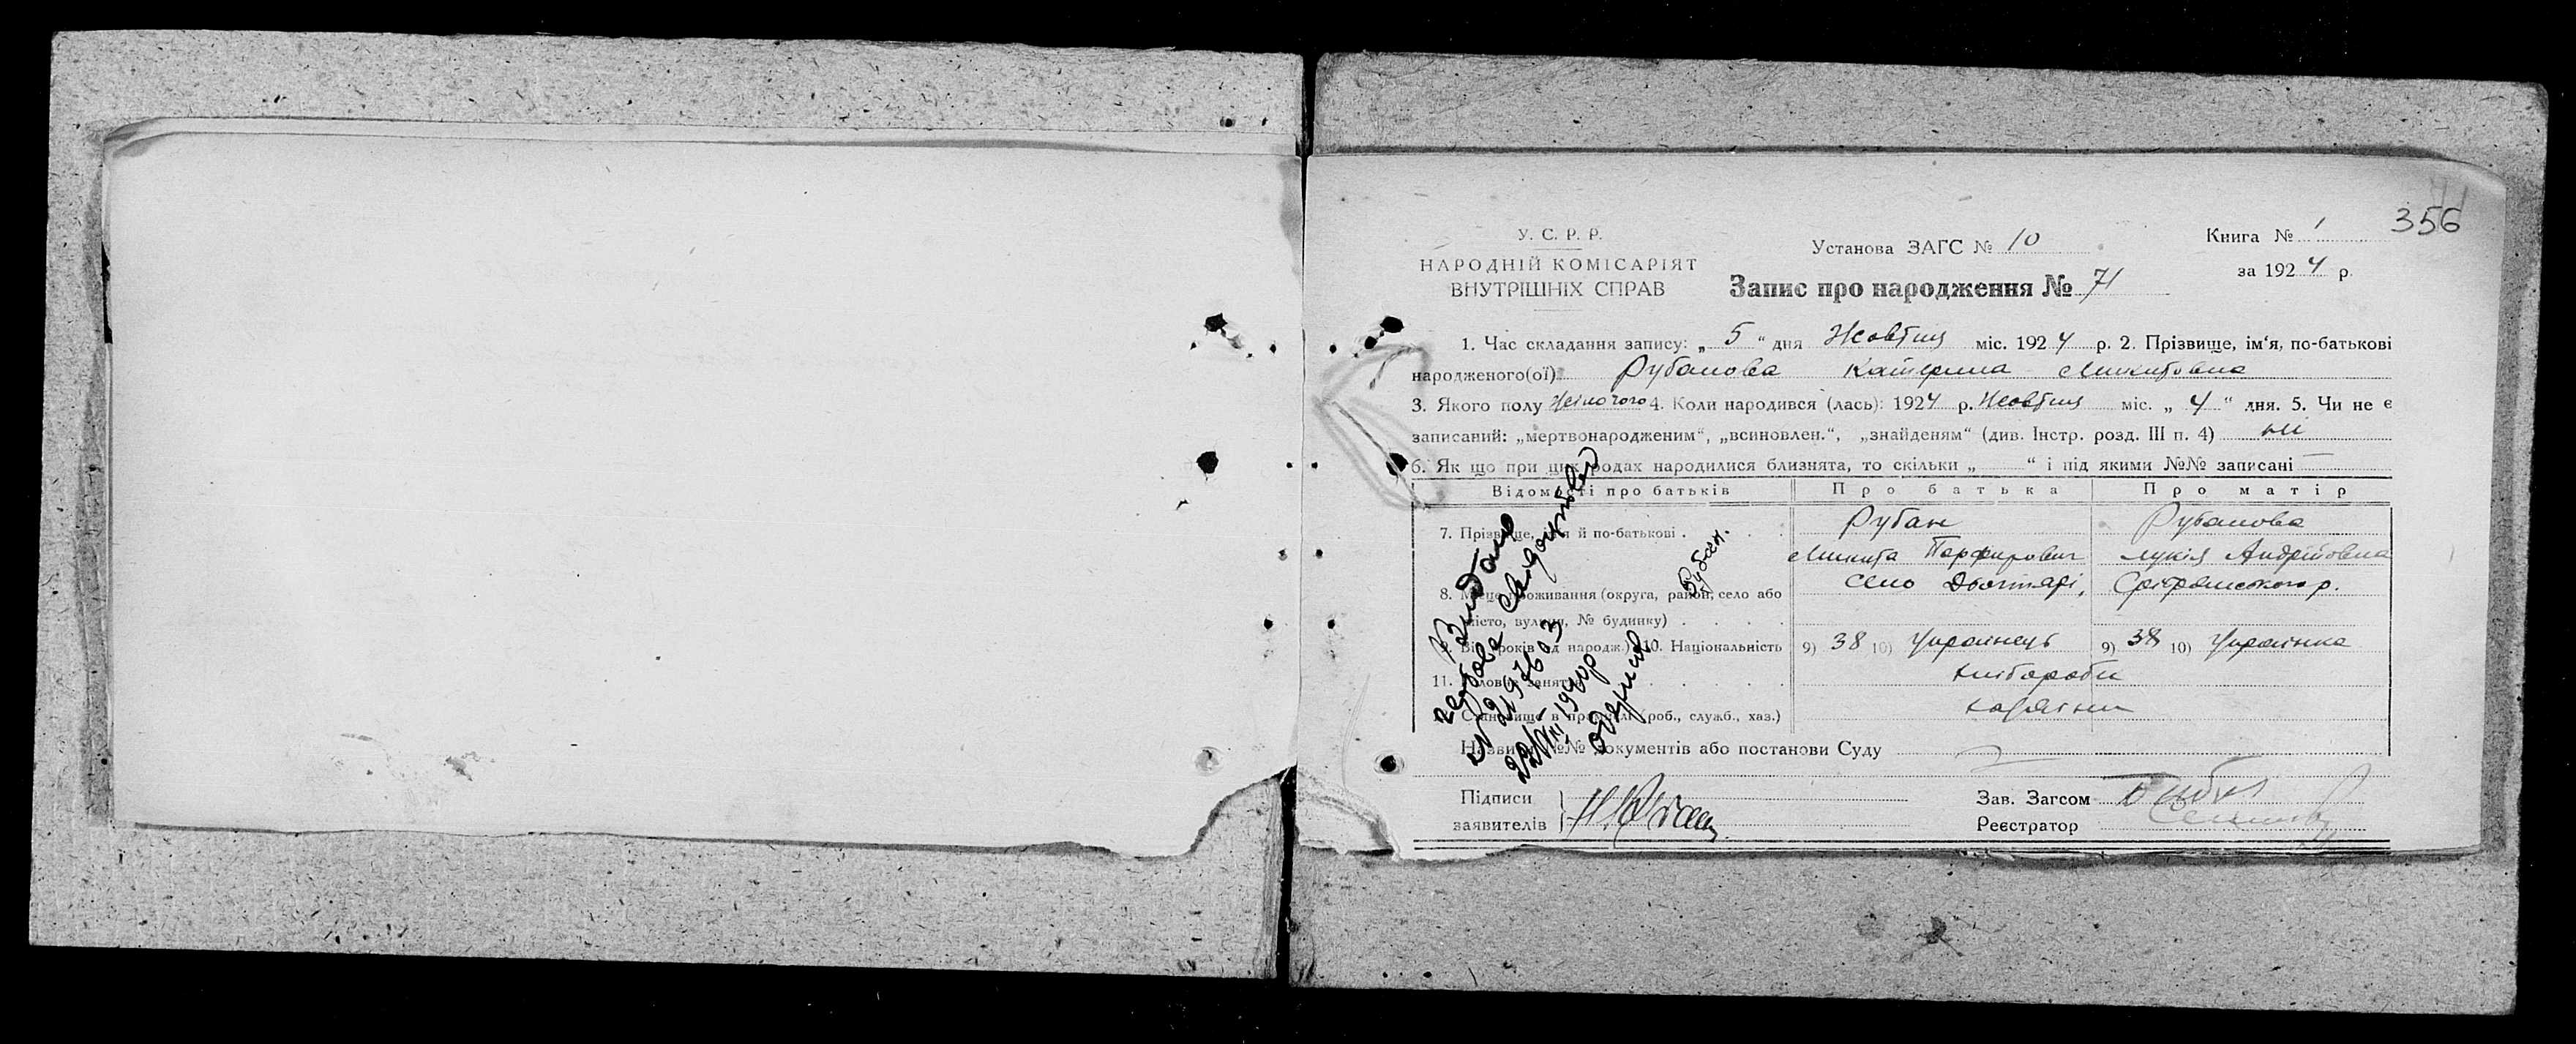 356
У. С. Р. Р.
НАРОДНІЙ КОМІСАРІЯТ
ВНУТРІШНІХ СПРАВ
Установа ЗАГС № 10
Книга № 1
за 1924 р.
Запис про народження № 71
1. Час складання запису: „ 5 “ дня Жовтня міс. 1924 р. 2. Прізвище, ім‘я, по-батькові
народженого(ої) Рубанова Катерина Микитовна
3. Якого полу жіночого 4. Коли народився (лась): 1924 р. Жовтня міс. „ 4 “ дня. 5. Чи не є
записаний: „мертвонародженим“, „всиновлен.“, „знайденям“ (див. Інстр. розд. III п. 4) ні
6. Як що при цих родах народилися близнята, то скільки „ “ і під якими №№ записані
Відомості про батьків Про батька Про матір
7. Прізвище, ім‘я й по-батькові Рубан Рубанова
Микита Парфирович Лукія Андрійовна
8. Місце проживання (округа, район, село або село Дігтярі, Срібрянського р.
місто, вулиця, № будинку)
9. Вік (років від народж.) 10. Національність 9) 38 10) Українець 9) 38 10) Українка
11. Головне заняття хлібороби
Становище в промислі (роб., служб., хаз.) хазяіни
Назви й №№ документів або постанови Суду
Підписи
заявителів
Зав. Загсом
Реєстратор
Видано
гербове свідоцтво
№ 2197603
22/VIII 1944р
одержив
Рубан.